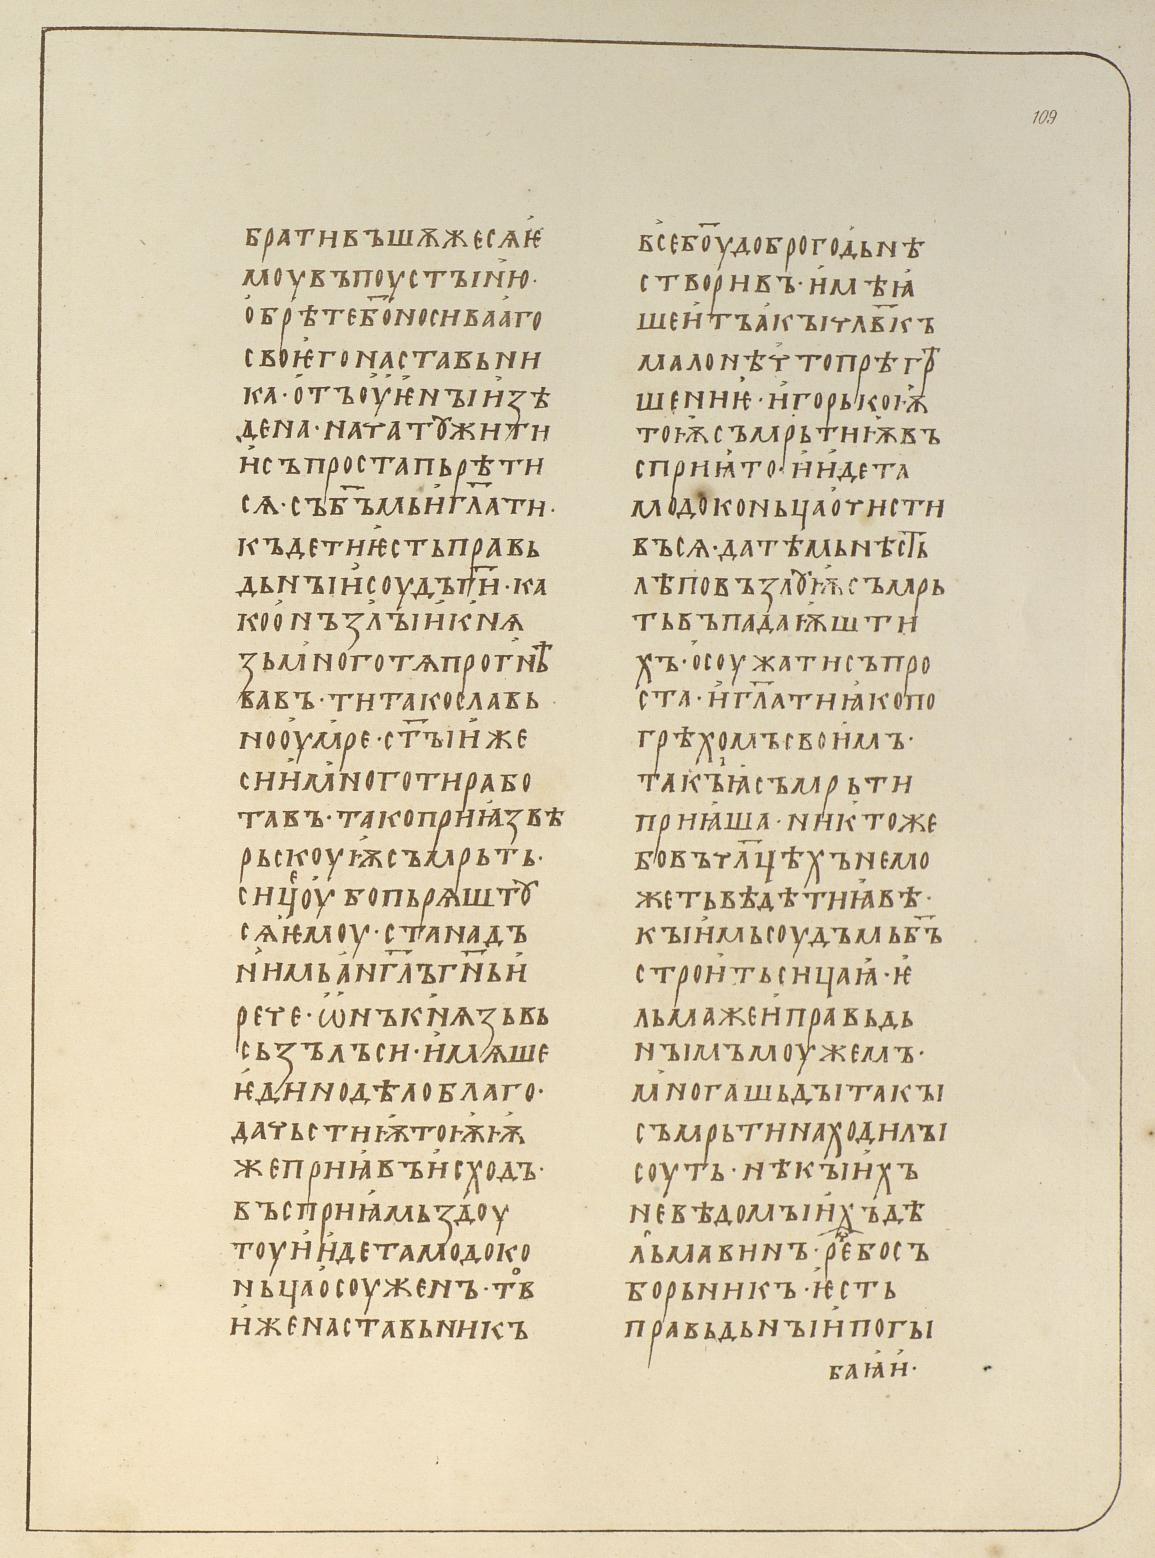 109
бративъшѫжесѧѥ
моувъпоустꙑню·
обрѣтеб҃оносивааго
своѥгонаставьни
ка·отъоуѥнꙑизѣ
дена·начатꙋжити
исъпростапьрѣти
сѧ·съб҃ъмьигл҃ати·
къдетиѥстьправь
дьнꙑисоудъг҃и·ка
коонъзълꙑикнѧ
зьмноготѧпрогнѣ
вавъ·титакославь
нооумре·ст҃ꙑиже
сиимноготирабо
тавъ·такоприꙗзвѣ
рьскоуѭсъмрьть·
сицеоубопьрѧштꙋ
сѧѥмоу·станадъ
нимьанг҃лъг҃ньи
рече·ѡнъкнѧзьвь
сьзълъси·имѧше
ѥдинодѣлоблаго·
дачьстиѭтоѭѭ
жеприꙗвъисходъ·
въсприꙗмьздоу
тоуиидетамодоко
ньцаосоуженъ·тв
иженаставьникъ
всеб҃оудоброгодьнѣ
створивъ·имѣꙗ
шеитъакꙑчл҃вкъ
малонѣчтопрѣгр
шениѥ·игорькоѭ
тоѭсъмрьтиѭвъ
сприꙗто·иидета
модоконьцаочисти
въсѧ·датѣмьнѣсть
лѣповъзлꙋѭсъмрь
тьвъпадаѭшти
хъ·осоужатисъпро
ста·игл҃атиꙗкопо
грѣхомъсвоимъ·
такъꙗсъмрьти
приꙗша·никтоже
бовъчл҃цѣхънемо
жетьвѣдѣтиꙗвѣ·
кꙑимьсоудъмьб҃ъ
строитьсицаꙗ·ѥ
льмажеиправьдь
нꙑимъмоужемъ·
многашьдꙑтакꙑ
съмрьтинаходилꙑ
соуть·нѣкꙑихъ
невѣдомꙑихъдѣ
льмавинъ·ребосъ
борьникъ·ѥсть
правьдьнꙑипогꙑ
баꙗи·